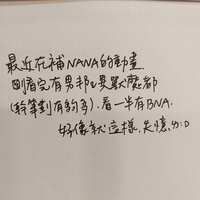 最近在補NANA的動畫
剛看完有男邦也異獸魔都
(幹筆劃有夠多). 看一半有BNA.
好像就這樣,失憶. 分:D